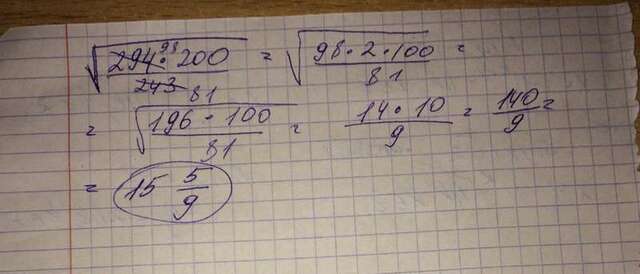 √(294 98 · 200 / 243 81) = √(98 · 2 · 100 / 81) =
= √(196 · 100 / 81) = 14 · 10 / 9 = 140 / 9 =
= 15 5/9